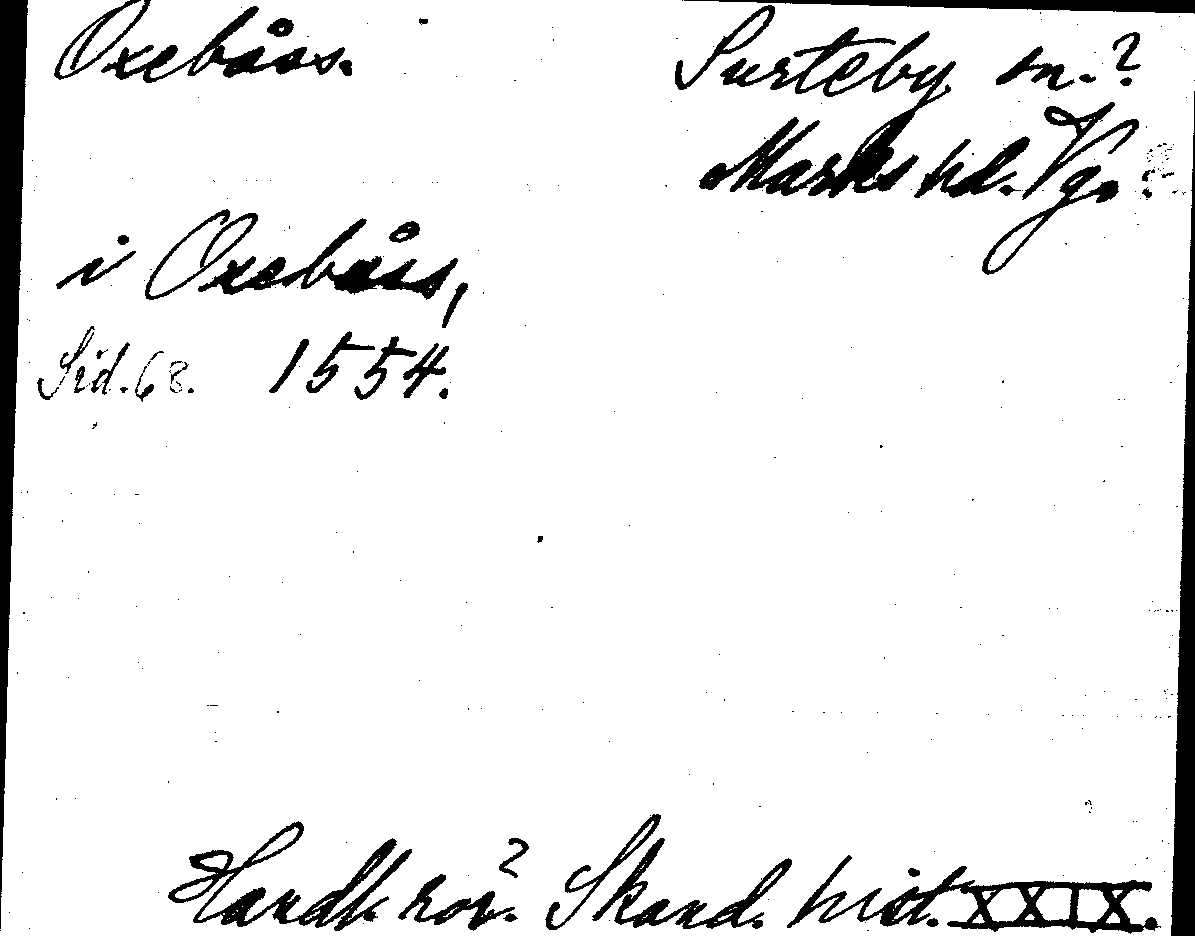 Oxebåss.
Surteby sn.?
Marks hd. Vg.
i Oxebåss,
Sid. 68. 1554.
Handl. rör? Skand. hist. XXIX.